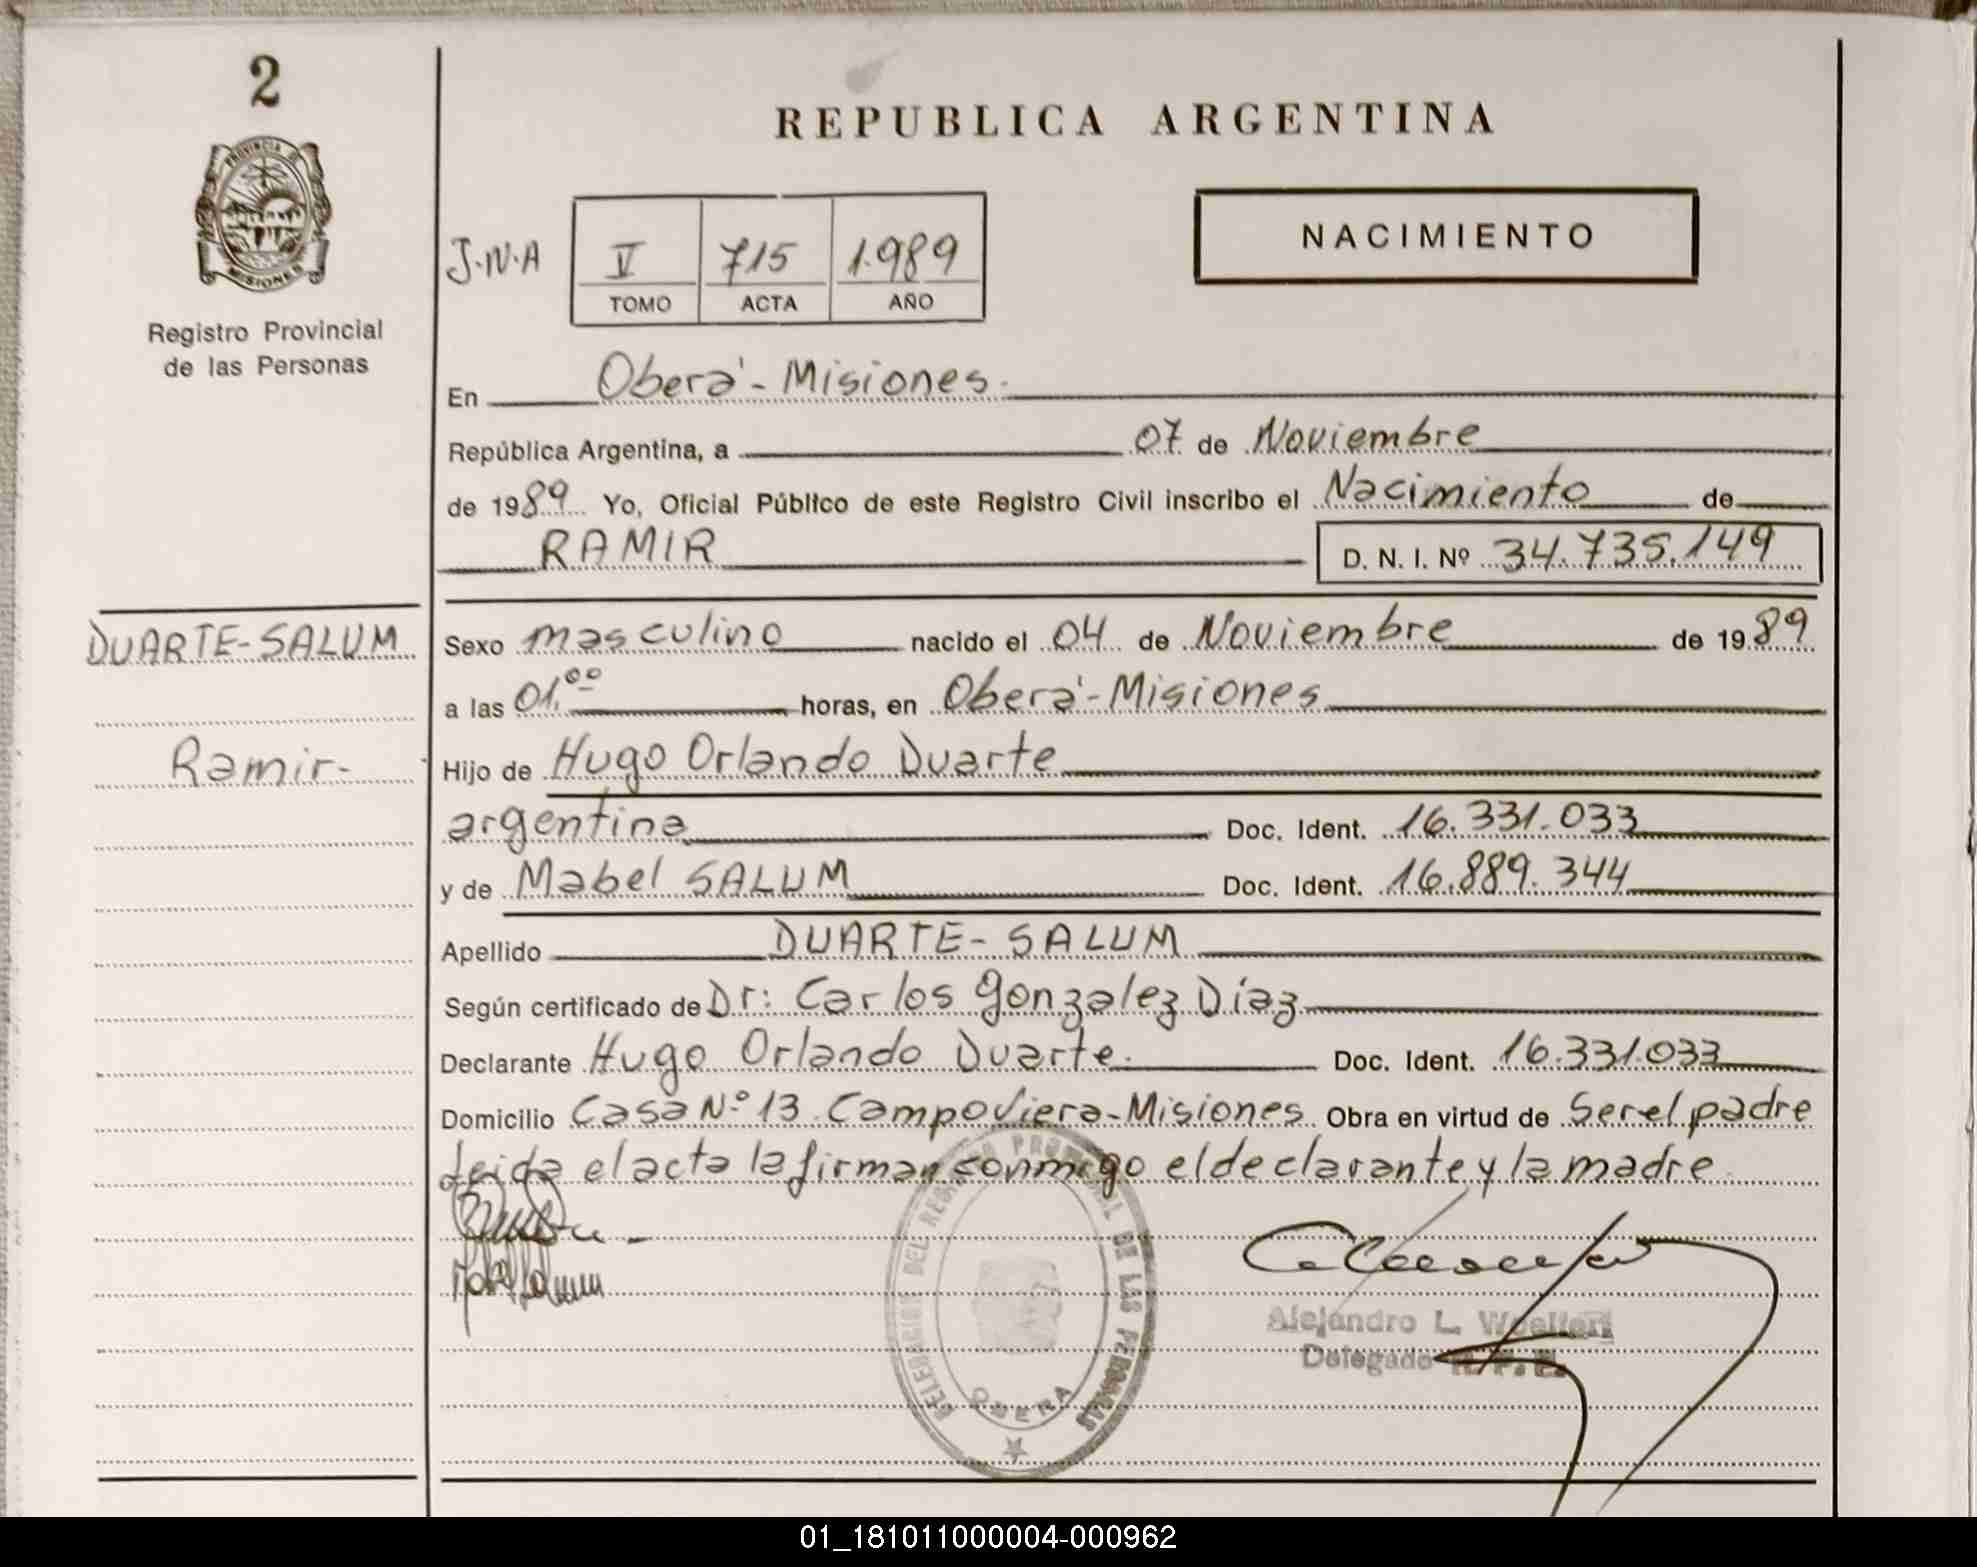 2
PROVINCIA DE
MISIONES
Registro Provincial
de las Personas
REPUBLICA ARGENTINA
J.N.A
V 715 1.989
TOMO ACTA AÑO
NACIMIENTO
En Oberá - Misiones.
República Argentina, a 07 de Noviembre
de 1989 Yo, Oficial Público de este Registro Civil inscribo el Nacimiento de
RAMIR D. N. I. Nº 34.735.149
DUARTE-SALUM
Ramir-
Sexo masculino nacido el 04 de Noviembre de 1989
a las 01,oo horas, en Oberá-Misiones
Hijo de Hugo Orlando Duarte
argentina Doc. Ident. 16.331.033
y de Mabel SALUM Doc. Ident. 16.889.344
Apellido DUARTE-SALUM
Según certificado de Dr: Carlos Gonzalez Díaz
Declarante Hugo Orlando Duarte. Doc. Ident. 16.331.033
Domicilio Casa N.º 13 Campo Viera-Misiones Obra en virtud de Ser el padre
Leida el acta la firman conmigo el declarante y la madre
DELEGACION DEL REGISTRO PROVINCIAL DE LAS PERSONAS
OBERA
Alejandro L.
Delegado R. P. P.
01_181011000004-000962